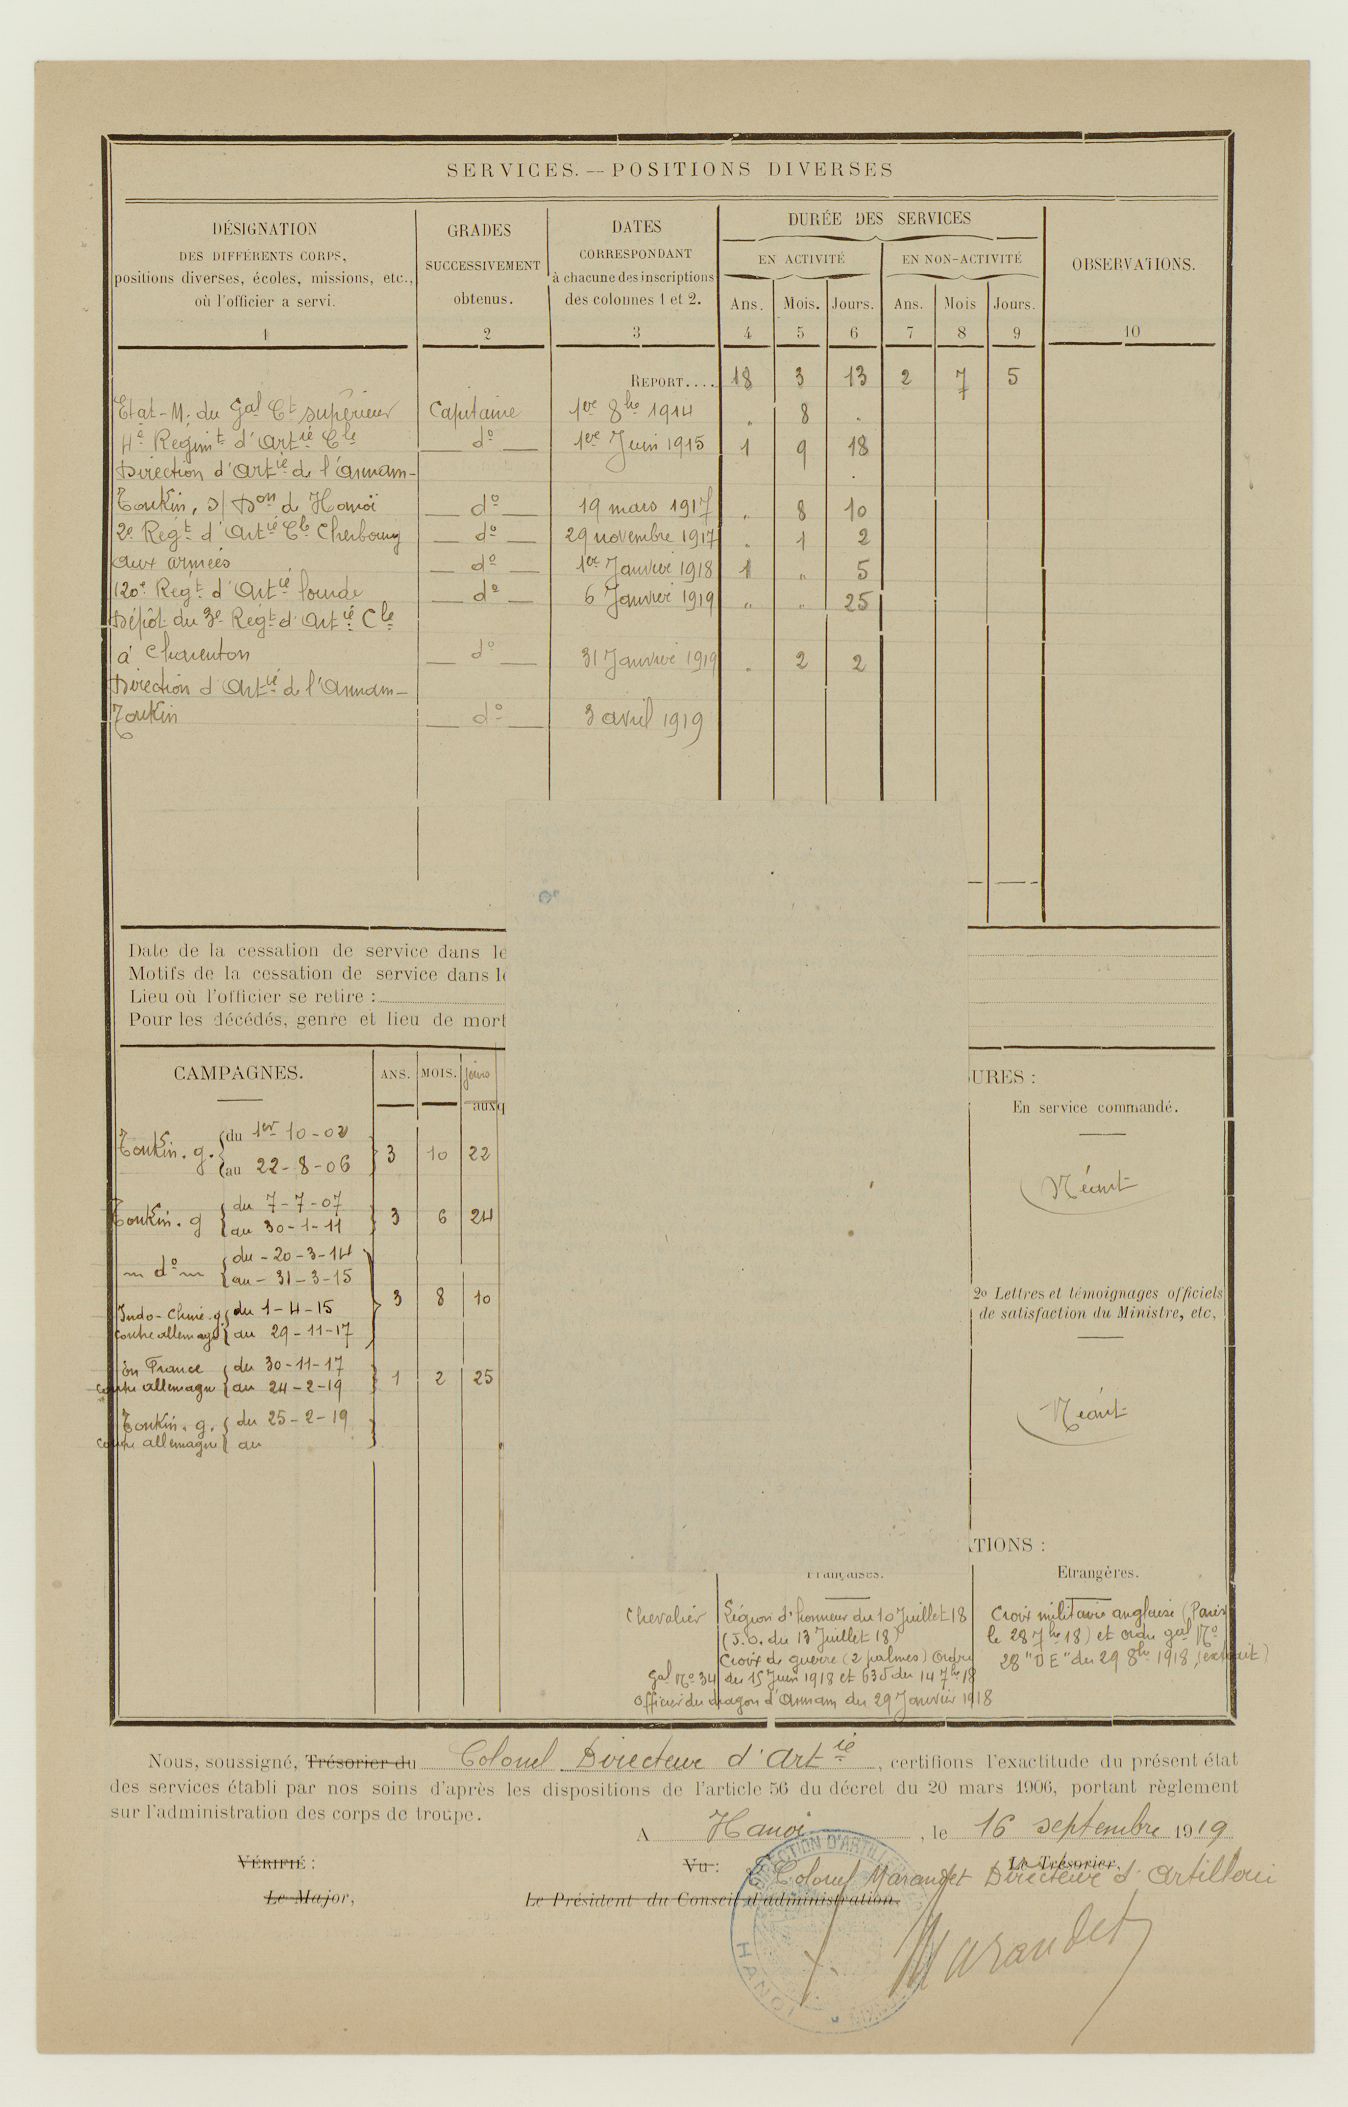 SERVICES. — POSITIONS DIVERSES
DÉSIGNATION
DES DIFFÉRENTS CORPS,
positions diverses, écoles, missions, etc.,
où l'officier a servi.
1
GRADES
SUCCESSIVEMENT
obtenus.
2
DATES
CORRESPONDANT
à chacune des inscriptions
des colonnes 1 et 2.
3
DURÉE DES SERVICES
EN ACTIVITÉ
EN NON-ACTIVITÉ
Ans. Mois. Jours. Ans. Mois Jours.
4 5 6 7 8 9
OBSERVATIONS.
10
REPORT.... 18 3 13 2 7 5
Etat-M. du Gal Ct supérieur Capitaine 1ere 8bre 1914 „ 8 .
4e Regimt d'Artie Cle — do — 1ere Juin 1915 1 9 18
Direction d'Artie de l'Annam-
Tonkin, s/Don de Hanoï — do — 19 mars 1917 „ 8 10
2e Regt d'Artie Cle Cherbourg — do — 29 novembre 1917 „ 1 2
aux armées — do — 1er Janvier 1918 1 „ 5
120e Regt d'Artie lourde — do — 6 Janvier 1919 „ „ 25
Dépôt du 3e Regt d'Artie Cle
à Charenton — do — 31 Janvier 1919 „ 2 2
Direction d'Artie de l'Annam-
Tonkin — do — 3 avril 1919
Date de la cessation de service dans le
Motifs de la cessation de service dans le
Lieu où l'officier se retire :
Pour les décédés, genre et lieu de mort
CAMPAGNES. ANS. MOIS. Jours
auxq
Tonkin. g. du 1er 10-02
au 22-8-06 3 10 22
Tonkin. g du 7-7-07
au 30-1-11 3 6 24
do du - 20-3-14
au - 31-3-15
3 8 10
Indo-Chine. g du 1-4-15
contre allemagne au 29-11-17
En France du 30-11-17
contre allemagne au 24-2-19 1 2 25
Tonkin. g. du 25-2-19
contre allemagne au
URES :
En service commandé.
Néant
2o Lettres et témoignages officiels
de satisfaction du Ministre, etc.
Néant
ATIONS :
Françaises.
Etrangères.
Chevalier Légion d'honneur du 10 Juillet 18
(J.O. du 13 Juillet 18)
Croix de guerre (2 palmes) Ordre
Gal No 34 du 15 Juin 1918 et 635 du 14 7bre 18
Officier du dragon d'Annam du 29 Janvier 1918
Croix militaire anglaise (Paris
le 28 7bre 18) et ordre gal No
28 "DE" du 29 8bre 1918, (extrait)
Nous, soussigné, Trésorier du Colonel Directeur d'Artie, certifions l'exactitude du présent état
des services établi par nos soins d'après les dispositions de l'article 56 du décret du 20 mars 1906, portant règlement
sur l'administration des corps de troupe.
A Hanoi, le 16 septembre 1919
VÉRIFIÉ :
Vu :
Le Trésorier,
Le Colonel Marandet Directeur d'Artillerie
Le Major,
Le Président du Conseil d'administration.
Marandet
HANOI